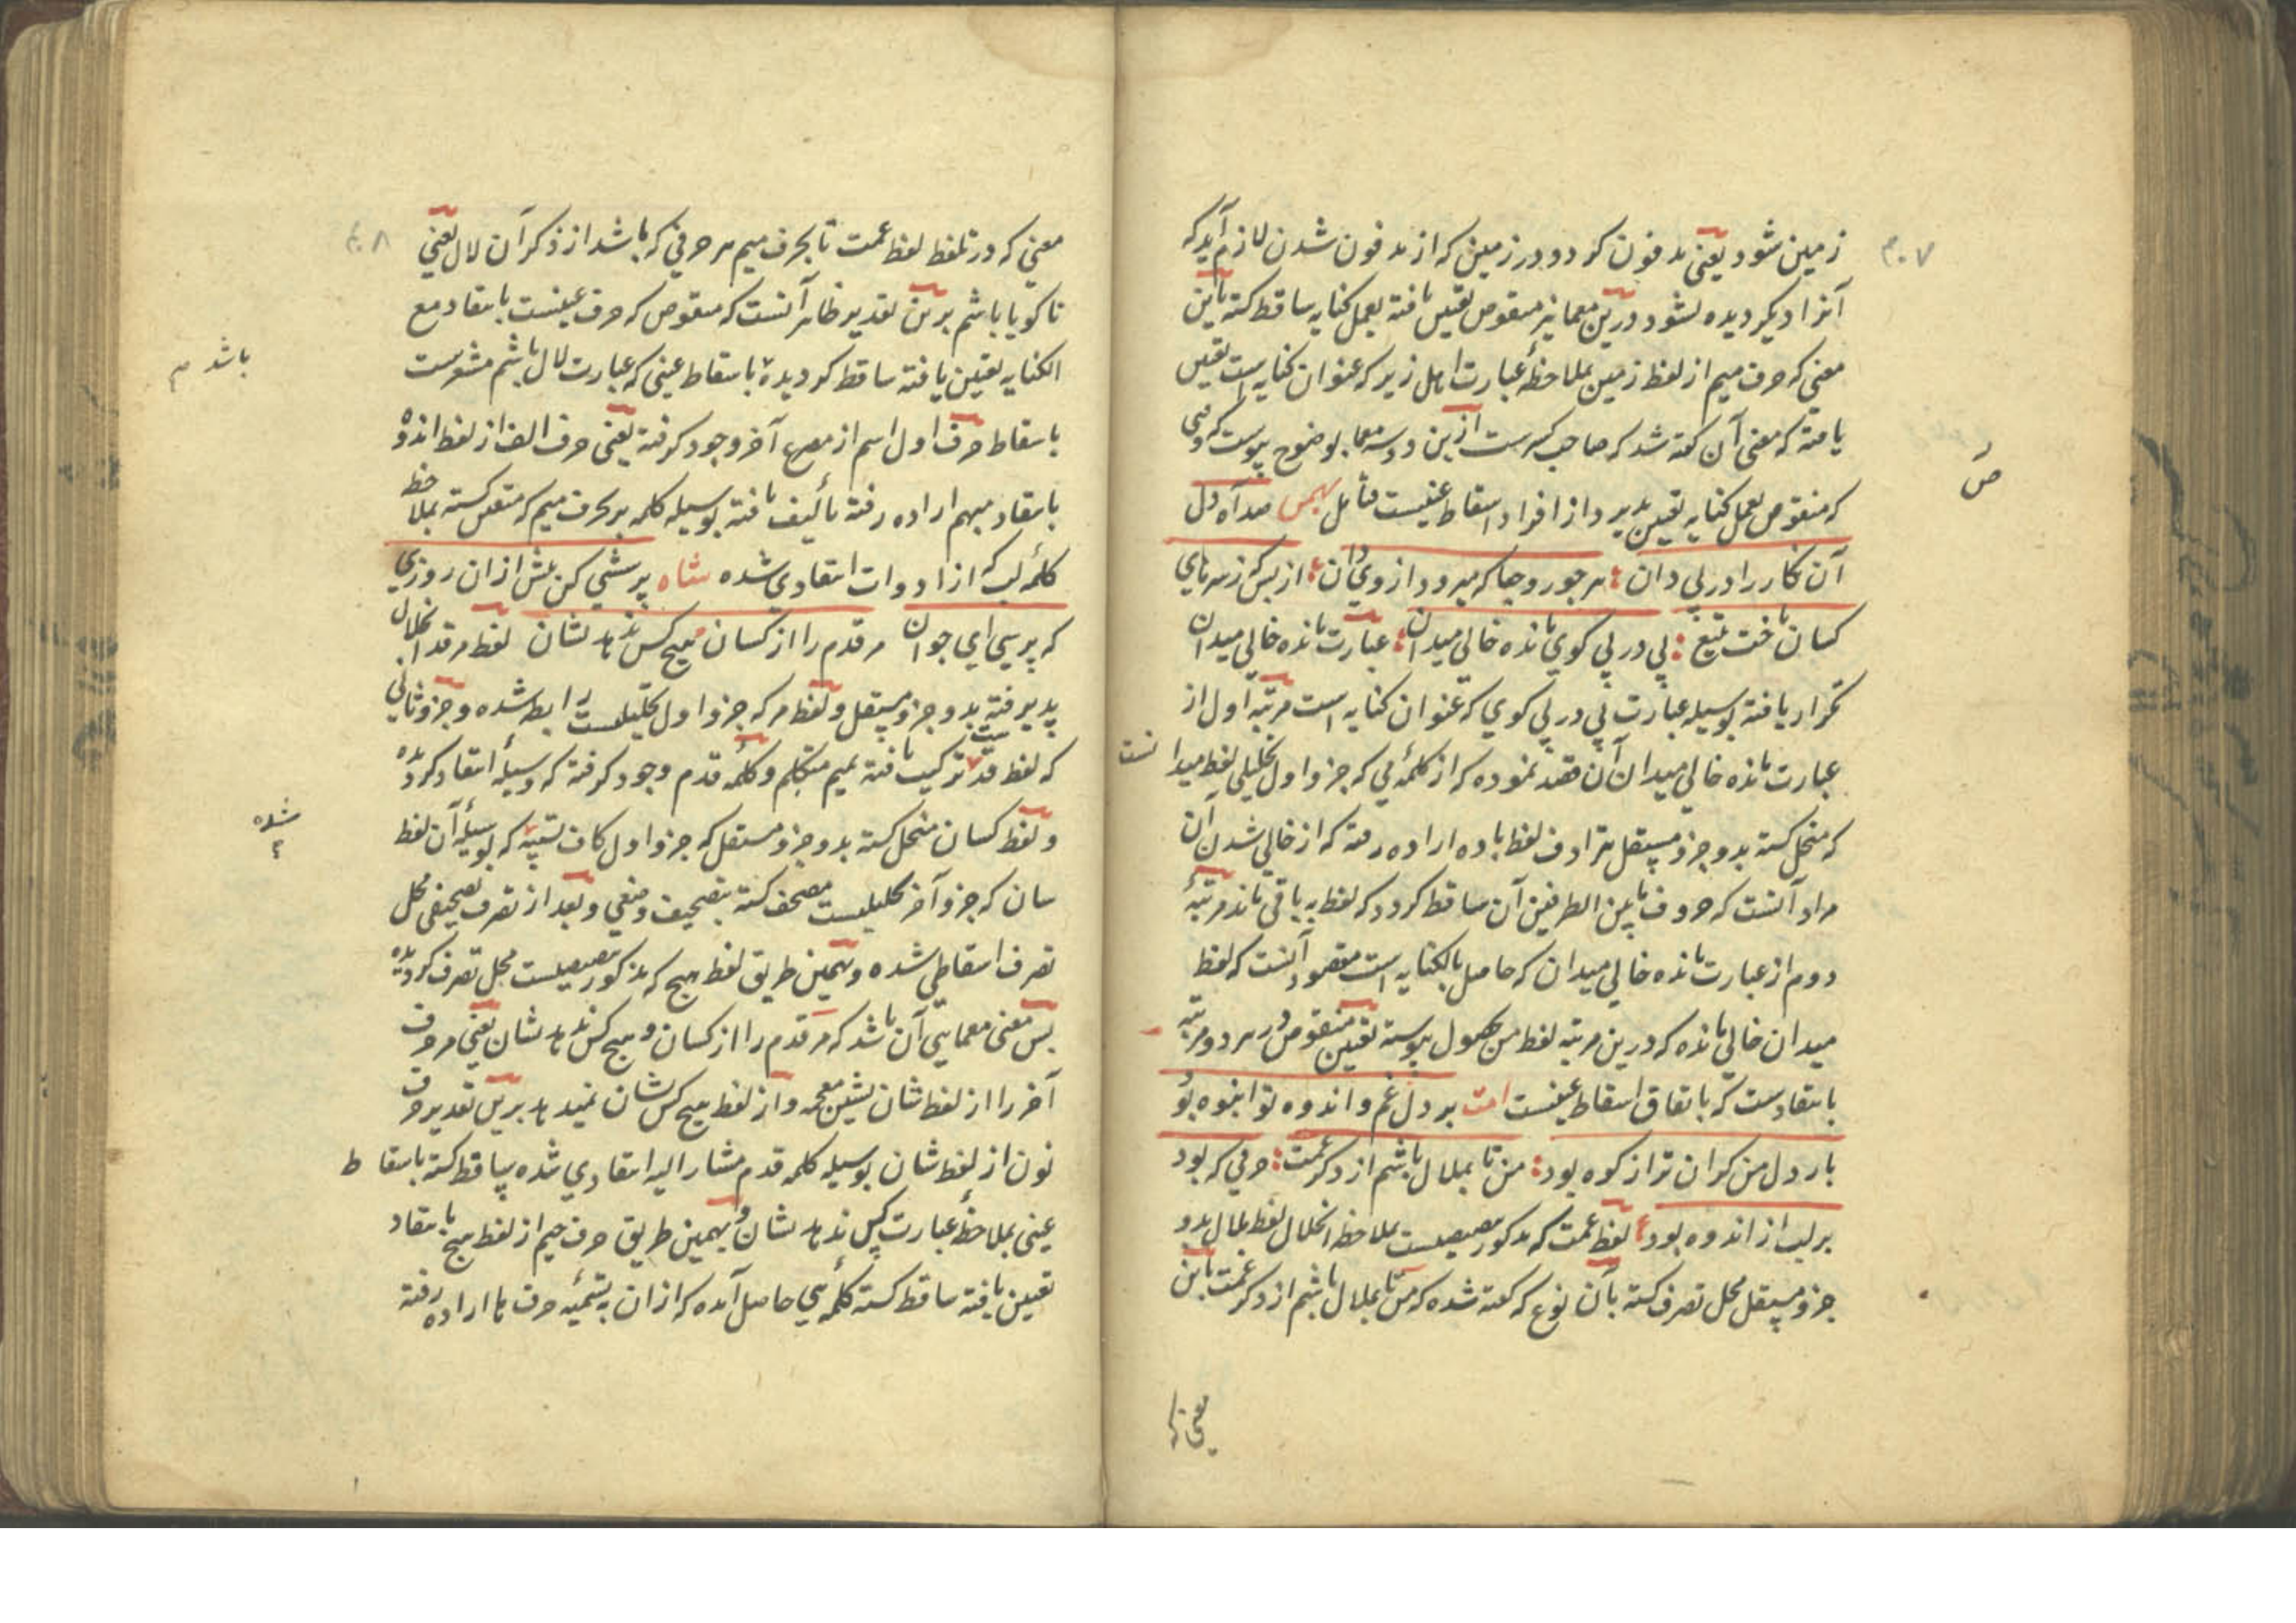 زمین شود یعنی مدفون کردد در زمین که از مدفون شدن لازم آید که
آنرا دیکر دیده نشود درین معما نیز منقوص تعیین یافته بعمل کنایه ساقط کشته باین
معنی که حرف میم از لفظ زمین بملاحظهٔ عبارت اهل زیر که عنوان کنایه است تعیین
یافته که معنی آن کفته شد که صاحب کسرست ازین دو سه معما بوضوح پیوست که وقتی
که منقوص بعمل کنایه تعیین پذیرد از افراد اسقاط عینیست فتأمل بهمن صد آه دل
آن نکار را در پی دان هر جور و جفا که میرود از وی دان از بس که ز سر تا پای
کسان تاخت بتیغ پی در پی کوی مانده خالی میدان عبارت مانده خالی میدان
تکرار یافته بوسیله عبارت پی در پی کوی که عنوان کنایه است مرتبهٔ اول از
عبارت مانده خالی میدان آن قصد نموده که از کلمهٔ می که جزو اول تحلیلی لفظ میدانست
که منحل کشته بدو جزو مستقل مترادف لفظ باده اراده رفته که از خالی شدن آن
مراد آنست که حروف ما بین الطرفین آن ساقط کردد که لفظ به باقی ماند مرتبهٔ
دوم از عبارت مانده خالی میدان که حاصل بالکنایه است مقصود آنست که لفظ
میدان خالی مانده که درین مرتبه لفظ من بحصول پیوسته تعیین منقوص در هر دو مرتبه
بانتقادست که باتفاق اسقاط عینیست امت بر دل غم و اندوه تو انبوه بود
بار دل من کران تر از کوه بود من تا بملال باشم از ذکر غمت حرفی که بود
بر لب از اندوه بود لفظ غمت که مذکور مصیبیست بملاحظه انحلال لفظ بملال بدو
جزو مستقل محل تصرف کشته بآن نوع که کفته شده که من تا بملال باشم از ذکر غمت باین
معنی که
معنی که در تلفظ لفظ غمت تا بحرف میم هر حرفی که باشد از ذکر آن لال یعنی
ناکویا باشم برین تقدیر ظاهر آنست که منقوص که حرف عینست بانتقاد مع
الکنایه تعیین یافته ساقط کردیده باسقاط عینی که عبارت لال باشم مشعرست
باسقاط حرف اول اسم از مصرع آخر وجود کرفته یعنی حرف الف از لفظ اندوه
بانتقاد مبهم اراده رفته تألیف یافته بوسیله کلمه بر بحرف میم که متعین کشته بملاحظ
کلمهٔ لب که از ادوات انتقادی شده شاه پرسشی کن پیش ازان روزی
که پرسی ای جوان مر قدم را از کسان هیچ کس ندهد نشان لفظ مرقد انحلال
پذیرفته بدو جزو مستقل و لفظ مر که جزو اول تحلیلیست رابط شده و جزو ثانی
که لفظ قدست ترکیب یافته بمیم متکلم و کلمهٔ قدم وجود کرفته که وسیلهٔ انتقاد کردیده
و لفظ کسان منحل کشته بدو جزو مستقل که جزو اول کاف تشبیه که بوسیلهٔ آن لفظ
سان که جزو آخر تحلیلیست مصحف کشته بتصحیف وضعی و بعد از تصرف تصحیفی محل
تصرف اسقاطی شده و بهمین طریق لفظ هیچ که مذکور مصیبیست محل تصرف کردیده
پس معنی معمایی آن باشد که مر قدم را از کسان و هیچ کس ندهد نشان یعنی مر حرف
آخر را از لفظ شان بشین معجمه و از لفظ هیچ کس نشان نمیدهد برین تقدیر حرف
نون از لفظ شان بوسیله کلمه قدم مشار الیه انتقادی شده ساقط کشته باسقاط
عینی بملاحظهٔ عبارت کس ندهد نشان و بهمین طریق حرف جیم از لفظ هیچ بانتقاد
تعیین یافته ساقط کشته کلمهٔ هی حاصل آمده که ازان بتسمیهٔ حرف ها اراده رفته
باشد م
شده
۳۰۷
۳۰۸
ص